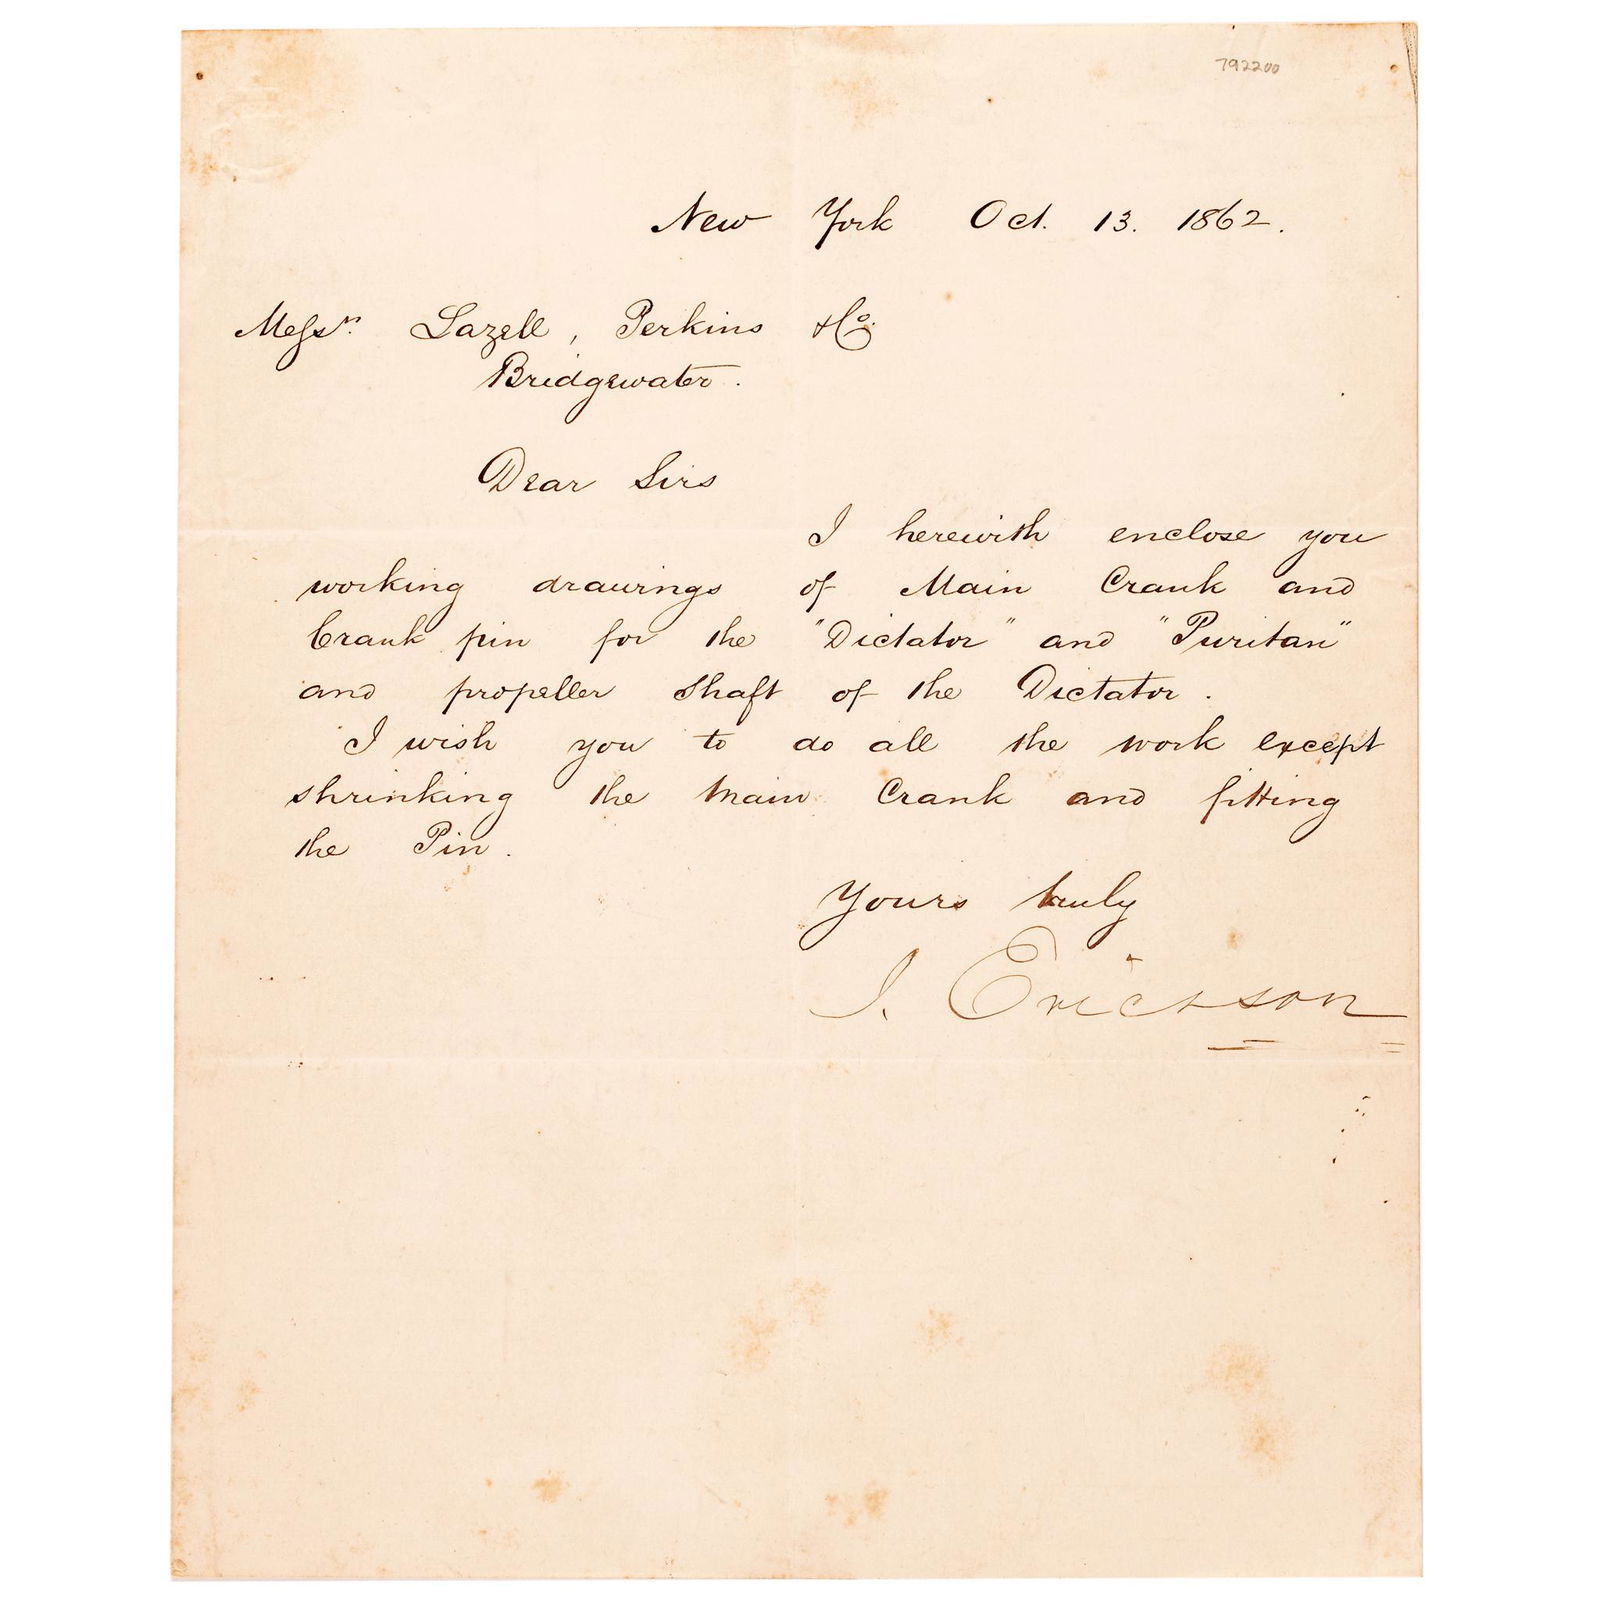 792200
New York Oct. 13. 1862.
Messrs. Lazell, Perkins & Co.
Bridgewater.
Dear Sirs
I herewith enclose you
working drawings of Main Crank and
Crank pin for the "Dictator" and "Puritan"
and propeller shaft of the Dictator.
I wish you to do all the work except
shrinking the Main Crank and fitting
the Pin.
Yours truly
J. Ericsson